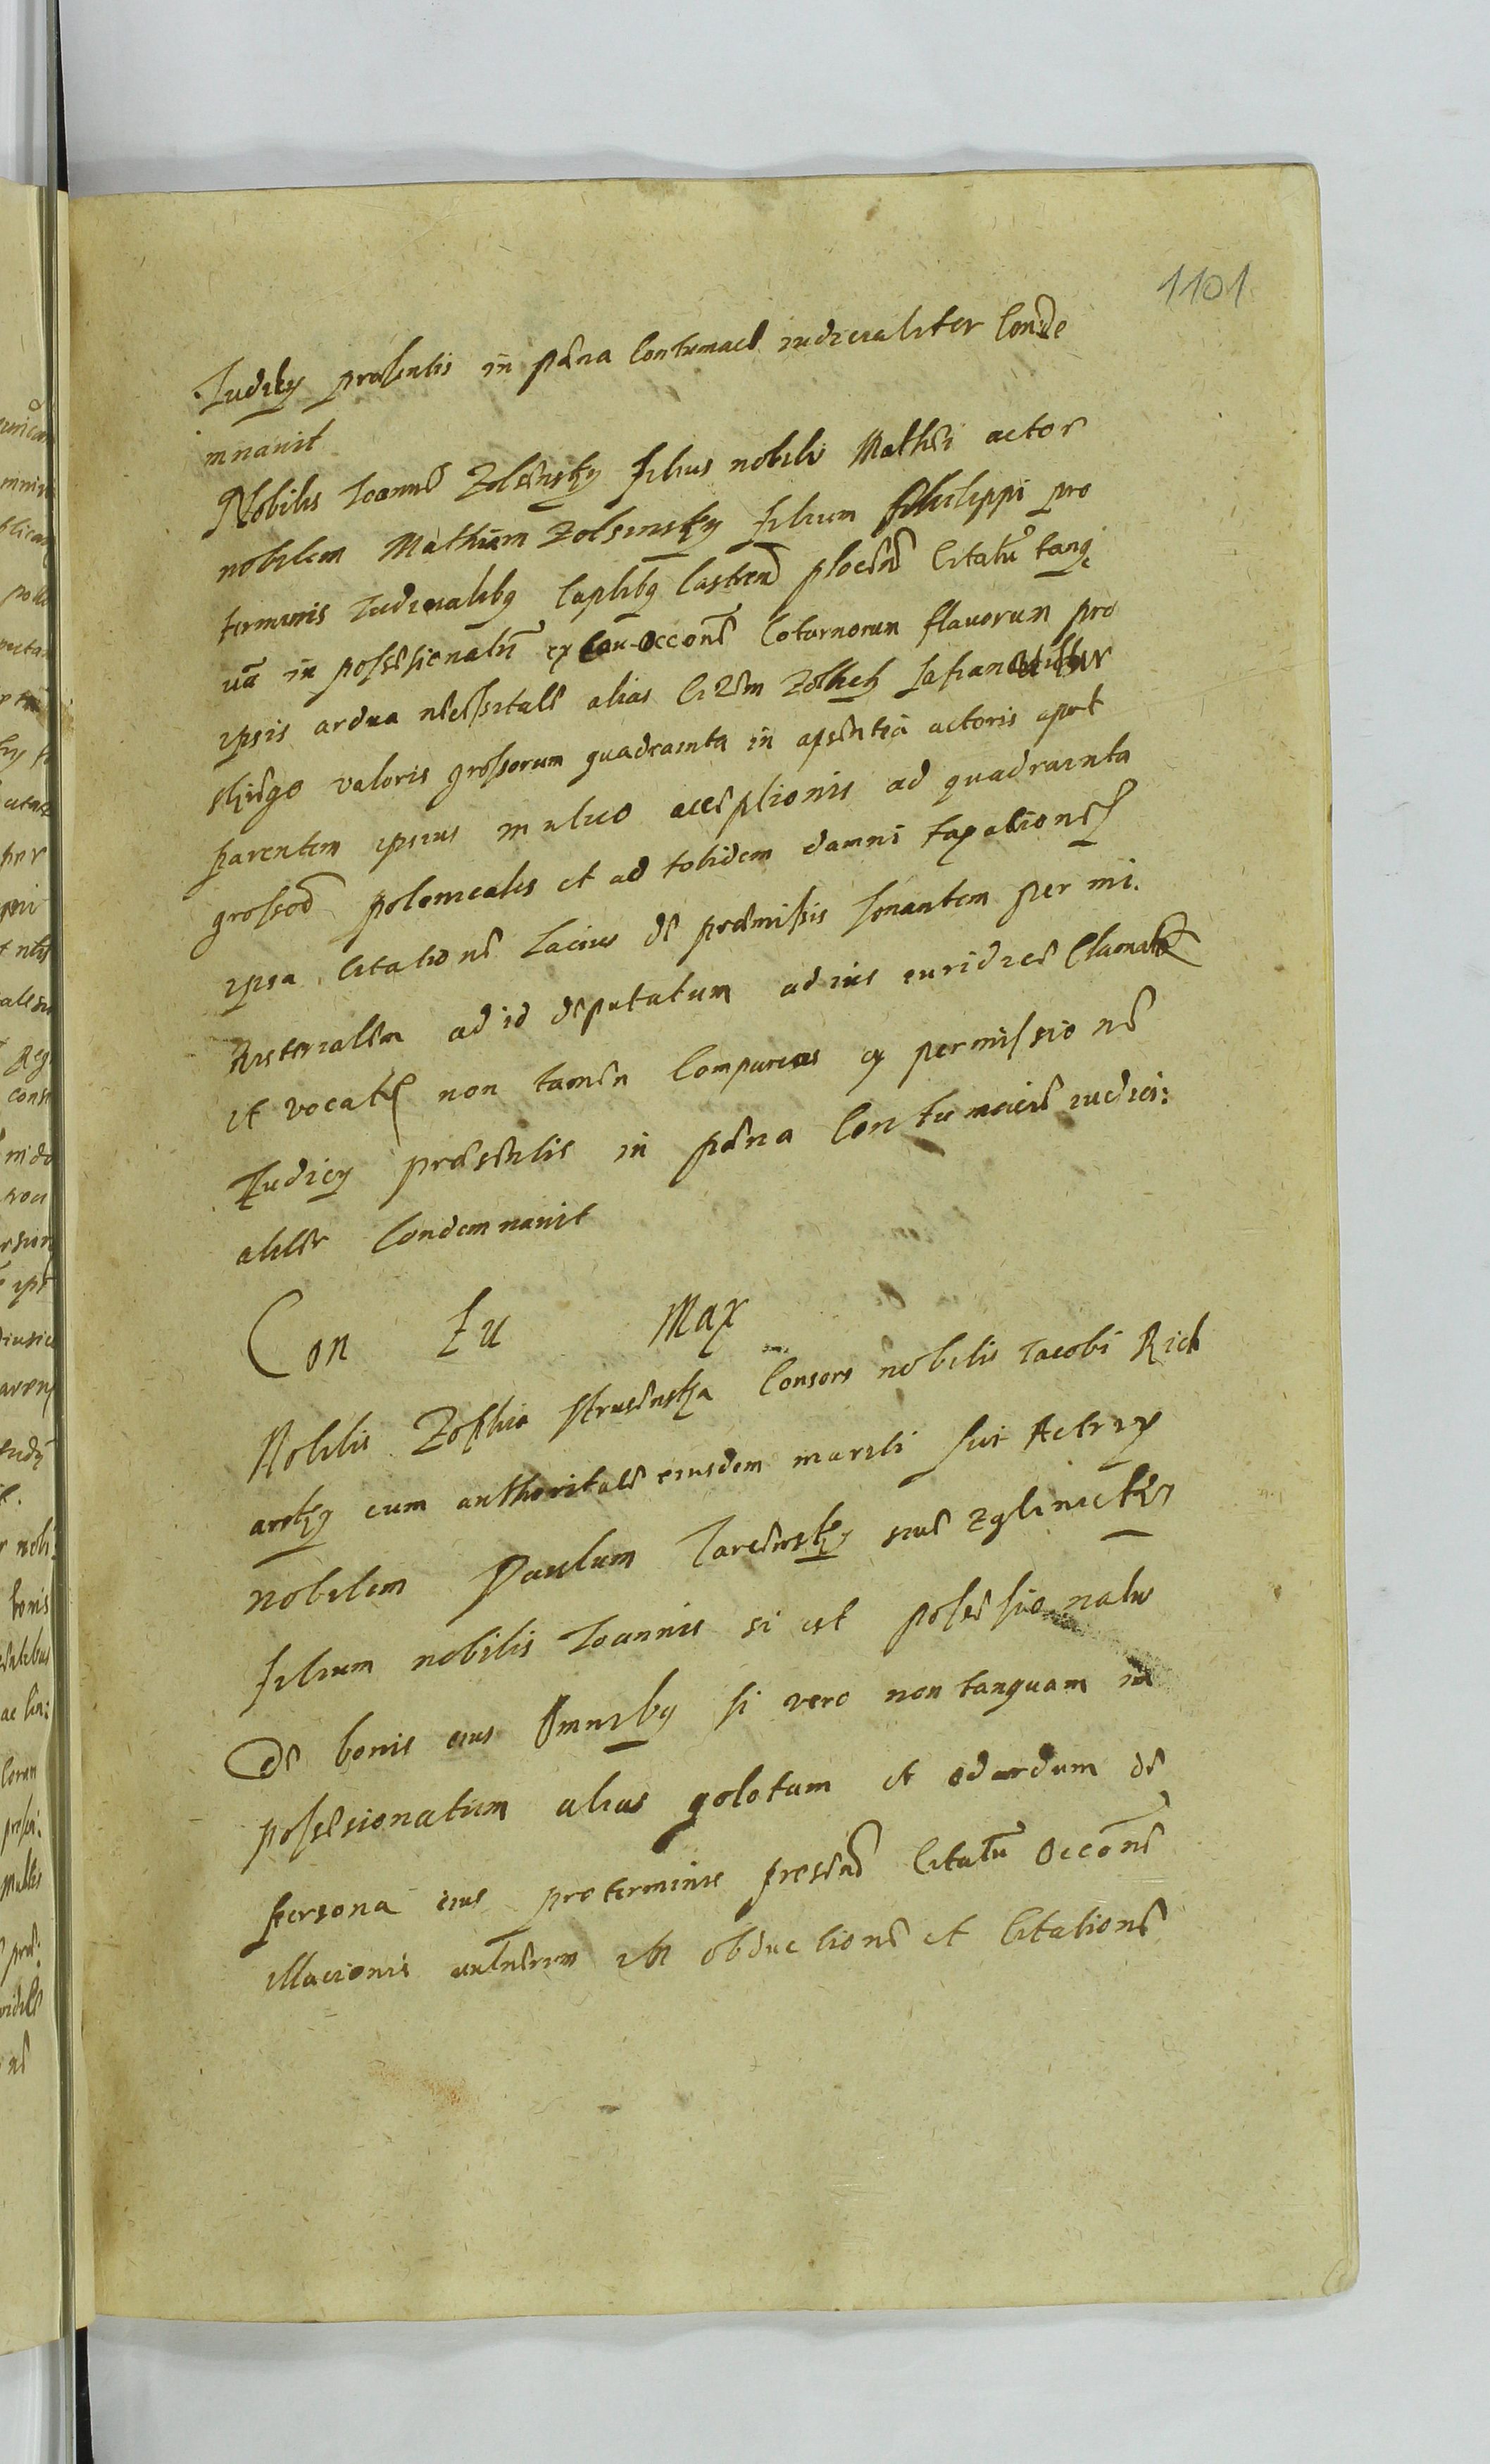 1101
Iudicy præsentis in pæna Contumaciæ iudicialiter Conde
mnauit
Nobilis Ioannes Zolsinsky filius nobilis Mathei actor
nobilem Mathiam Zolsinsky filium Philippi pro
terminis Iudicialibq Caplibq Castren ploceñ Citatū tanq
uā in possessionatū Occone Coturnorum flauorum pro
ipsis ardua necessitate alias Cizem Zolhich
skiego valoris grossorum quadrainta in apsentia actoris apvt
parentem ipsius mutuo acceptionis ad quadrainta
grossor polonicales et ad totidem damni taxationes
ipsa Citatione Lacius de præmissis sonantem per mi.
nisterialem ad id deputatum ad ius iuridice Clamat
et vocat non tamen Comparens ex permissione
Iudicy præsentis in pæna Contumaciæ iudici:
aliter Condemnauit
Con tu Max
Nobilis Zophia Strusinska Consors nobilis Iacobi Rich
arsky cum authoritate eiusdem mariti sui Actrix
nobilem Paulum Tarcinsky siue Zglinicky
filium nobilis Ioannis si est possessionatu
de bonis eius Omnibq si vero non tanquam in
possessionatum alias golotam et odardum de
persona eius pro terminis presenñ Citatū Occone
illacionis vulnerum ibi obductione et Citatione